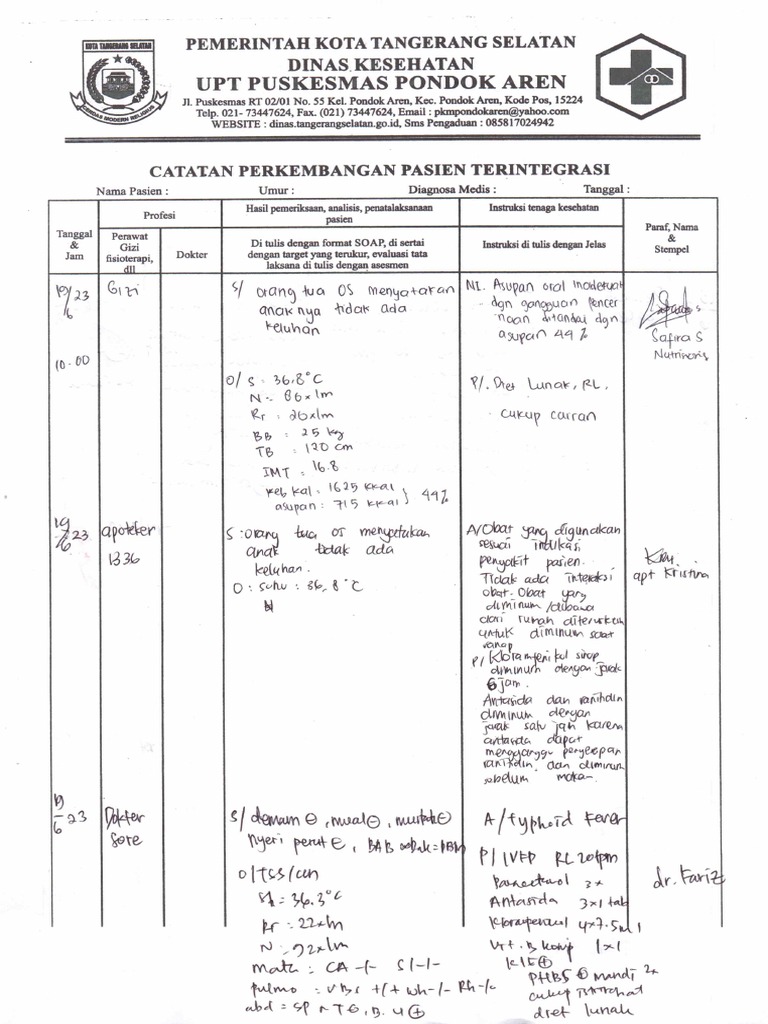 KOTA TANGERANG SELATAN
CERDAS MODERN RELIGIUS
PEMERINTAH KOTA TANGERANG SELATAN
DINAS KESEHATAN
UPT PUSKESMAS PONDOK AREN
Jl. Puskesmas RT 02/01 No. 55 Kel. Pondok Aren, Kec. Pondok Aren, Kode Pos, 15224
Telp. 021- 73447624, Fax. (021) 73447624, Email : pkmpondokaren@yahoo.com
WEBSITE : dinas.tangerangselatan.go.id, Sms Pengaduan : 085817024942
CATATAN PERKEMBANGAN PASIEN TERINTEGRASI
Nama Pasien : Umur : Diagnosa Medis : Tanggal :
Tanggal
&
Jam
Profesi
Perawat
Gizi
fisioterapi,
dll
Dokter
Hasil pemeriksaan, analisis, penatalaksanaan
pasien
Di tulis dengan format SOAP, di sertai
dengan target yang terukur, evaluasi tata
laksana di tulis dengan asesmen
Instruksi tenaga kesehatan
Instruksi di tulis dengan Jelas
Paraf, Nama
&
Stempel
19/6 23
10.00
Gizi
S/ orang tua OS menyatakan
anaknya tidak ada
keluhan
O/ S : 36,8°C
N : 86x/m
Rr : 20x/m
BB : 25 kg
TB : 120 cm
IMT : 16.8
keb kal : 1625 kkal
asupan : 715 kkal } 44%
NI. Asupan oral inadekuat
dgn gangguan pencer
naan ditandai dgn
asupan 44%
P/. Diet Lunak, RL.
cukup cairan
Safira S
Nutrisionis
19/6 23
apoteker
1336
S : orang tua OS menyatakan
anak tidak ada
keluhan.
O : suhu : 36,8°C
N
A/ Obat yang digunakan
sesuai indikasi
penyakit pasien.
Tidak ada interaksi
obat. Obat yang
diminum /dibawa
dari rumah diteruskan
untuk diminum saat
ranap
P/ Kloramfenikol sirop
diminum dengan jarak
6 jam.
Antasida dan ranitidin
diminum dengan
jarak satu jam karena
antasida dapat
mengganggu penyerapan
ranitidin. dan diminum
sebelum makan.
apt Kristina
19/6 23
Dokter
Sore
S/ demam ⊖, mual ⊖, muntah ⊖
nyeri perut ⊖, BAB
O/ TSS/CM
S : 36.3°C
Rr : 22x/m
N : 92x/m
mata : CA -/- SI -/-
pulmo : VBS +/+ Wh -/- Rh -/-
abd =
A/ typhoid fever
P/ IVFD RL 20 tpm
Paracetamol 3x
Antasida 3x1 tab
Kloramfenikol 4x7.5ml
Vit. B komp 1x1
KIE ⊕
PHBS ⊕ mandi 2x
cukup istirahat
diet lunak
dr. Fariz